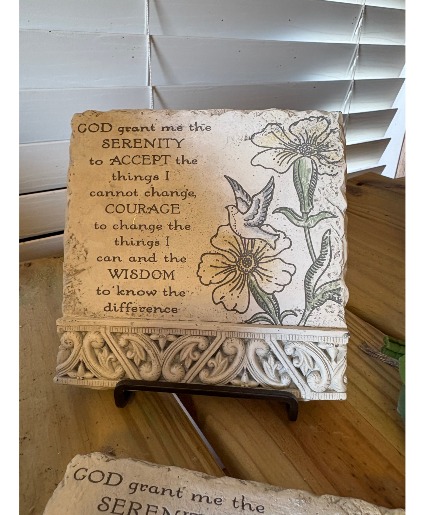 GOD grant me the
SERENITY
to ACCEPT the
things I
cannot change,
COURAGE
to change the
things I
can and the
WISDOM
to know the
difference
GOD grant me the
SERENITY